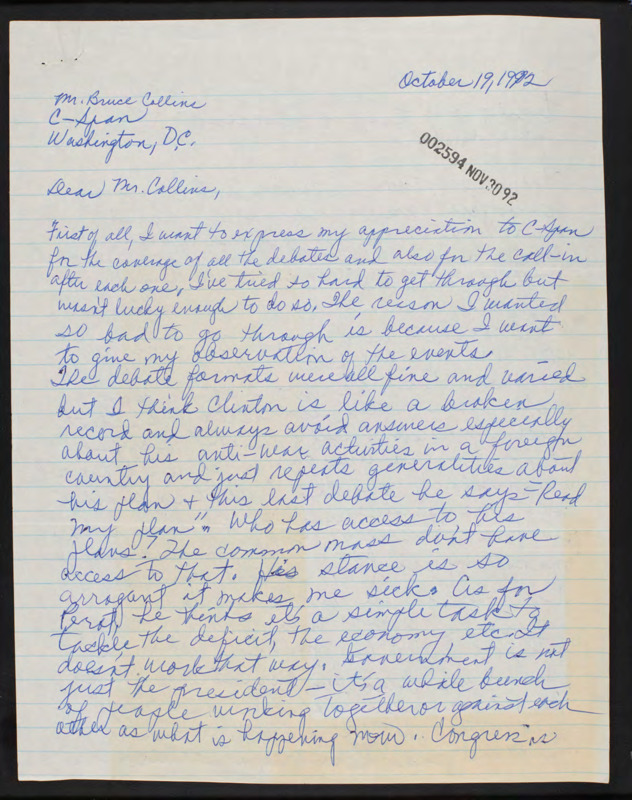 October 19, 1992
Mr. Bruce Collins
C-Span
Washington, D.C.
002594 NOV 30 92
Dear Mr. Collins,
First of all, I want to express my appreciation to C-Span
for the coverage of all the debates and also for the call-in
after each one, I've tried so hard to get through but
wasn't lucky enough to do so. The reason I wanted
so bad to go through is because I want
to give my observation of the events.
The debate formats were all fine and varied
but I think Clinton is like a broken
record and always avoid answers especially
about his anti-war activities in a foreign
country and just repeats generalities about
his plan & this last debate he says - "Read
my plan". Who has access to his
plans. The common mass don't have
access to that. His stance is so
arrogant it makes me sick. As for
Perot he thinks it's a simple task to
tackle the deficit, the economy etc. It
doesn't work that way. Government is not
just the president - it's a whole bunch
of people working together or against each
other as what is happening now. Congress is